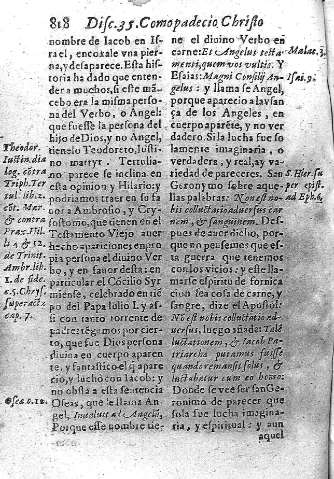 818 Disc. 35. Como padecio Christo
nombre de Iacob en Is
rael, encoxale vna pier
na, y desaparece. Esta his
toria ha dado que enten
der a muchos, si este mā
cebo era la misma perso
na del Verbo, o Angel:
que fuesse la persona del
hijo de Dios, y no Angel,
tienelo Teodoreto, Iusti-
no martyr. Tertulia-
no parece se inclina en
esta opinion y Hilario; y
podriamos traer en su fa
uor a Ambrosio, y Cry-
sostomo, que en el
Testamento Viejo auer
hecho apariciones en pro
pia persona el diuino Ver
bo, y en fauor desta: en
particular el Cōcilio Syr
miense, celebrado en tiē
po del Papa Iulio I. y as-
si con tanto torrente de
padres: tēgamos por cier
to, que fue Dios persona
diuina en cuerpo aparen
te, y fantastico el q̄ apare
cio, y lucho con Iacob: y
no obsta a esta sentencia
Oseas, que le llama An-
gel,
Porque este nombre tie-
Theodor.
Iustin. dia
log. cōtra
Triph. Ter
tul. lib. 2.
cōt. Mar.
& contra
Prax. Hil.
li. 4. & 12.
de Trinit.
Ambr. lib.
1. de fide.
c. 5. Chrys.
cap. 7.
Osea. c. 12.
ne el diuino Verbo en
carne: Et Angelus testa-
menti, quem vos vultis. Y
Esaias: Magni Consilij An-
gelus: y llama se Angel,
porque aparecio a la vsan
ça de los Angeles, en
cuerpo aparēte, y no ver
dadero. Si la lucha fue so
lamente imaginaria, o
verdadera, y real, ay va-
riedad de pareceres. San
Geronymo sobre aque-
llas palabras: Non est no-
bis colluctatio aduersus car
nem, & sanguinem. Des-
pues de auer dicho, por-
que no pensemos que es-
ta guerra que tenemos
con los vicios: y este lla-
marse espiritu de fornica
cion sea cosa de carne, y
sangre, dize el Apostol:
Nō est nobis colluctatio ad
uersus, luego añade: Talē
luctationem, & Iacob Pa-
triarcha putamus fuisse
quando remansit solus, &
luctabatur cum eo homo:
Donde se vee ser San Ge-
ronimo de parecer que
sola fue lucha imagina-
ria, y espiritual: y aun
aquel
Malac. 3.
Isai. 9.
S. Hier. su
per epist.
ad Eph. 6.